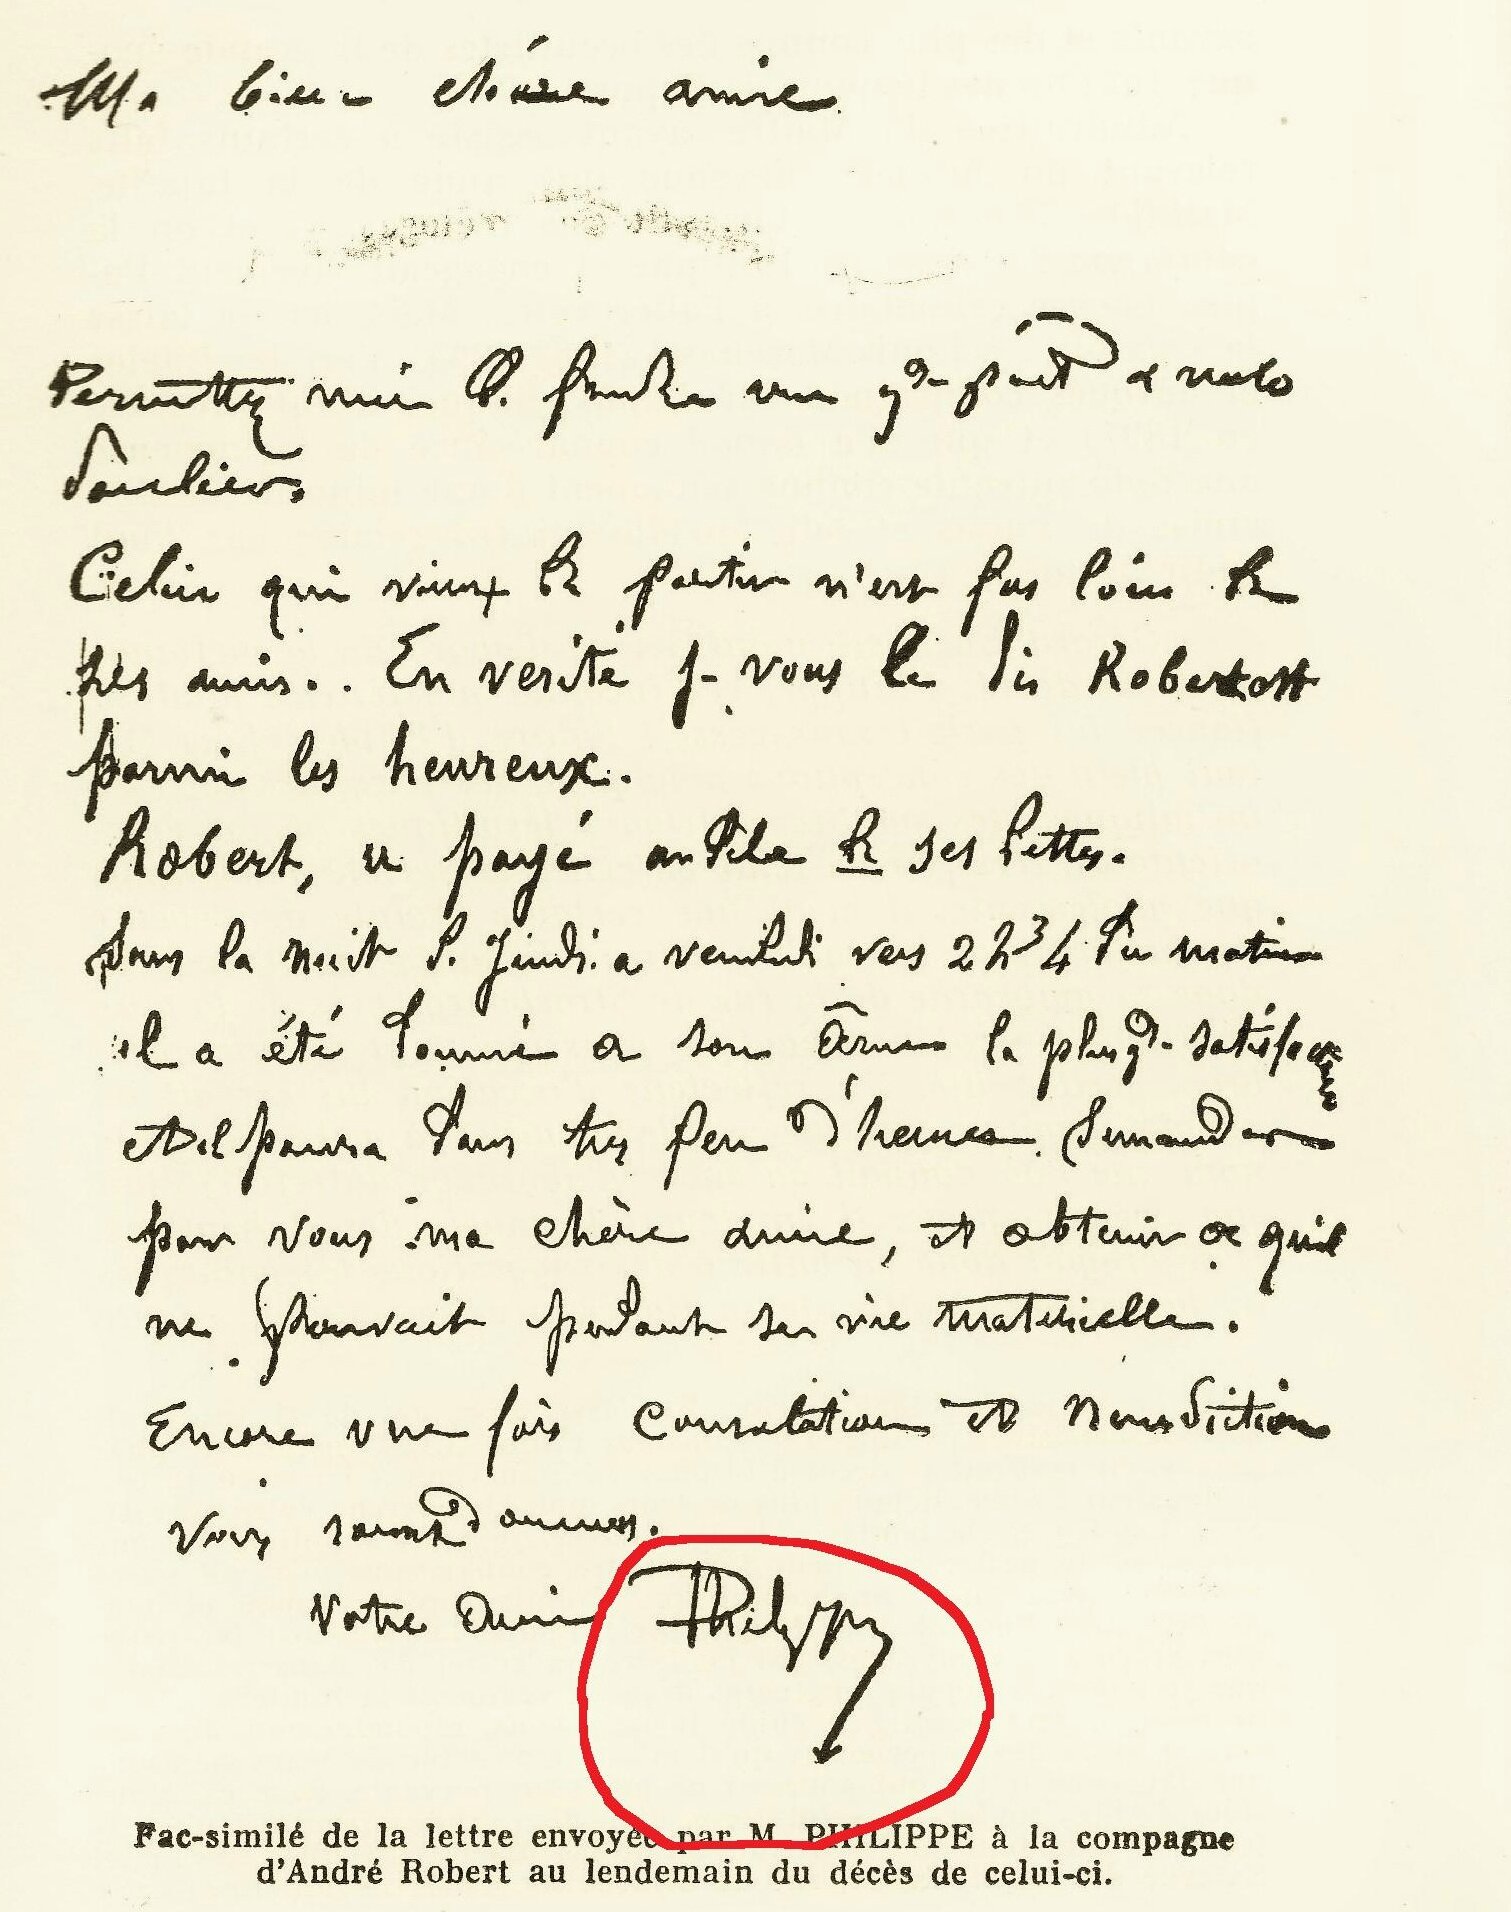 Ma bien chère amie
Permettez moi de prendre une gde part a votre
douleur.
Celui qui vient de partir n'est pas loin de
ses amis.. En verité je vous le dis Robert est
parmi les heureux.
Robert, a payé au dela de ses dettes.
Dans la nuit de Jeudi a vendredi vers 2 h 3/4 du matin
il a été donné a son âme la plus gde satisfac
et il pourra dans tres peu d'heures demander
pour vous ma chère amie, et obtenir ce qu'il
ne pouvait pendant sa vie materielle.
Encore une fois consolation et
Votre Ami Philippe
Fac-similé de la lettre envoyée par M. PHILIPPE à la compagne
d'André Robert au lendemain du décès de celui-ci.